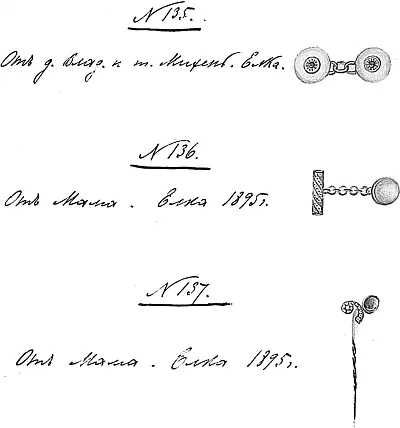 N 135.
Отъ д. Влад. и т. Михень. Елка.
N 136.
Отъ Мама. Елка 1895г.
N 137.
Отъ Мама. Елка 1895г.